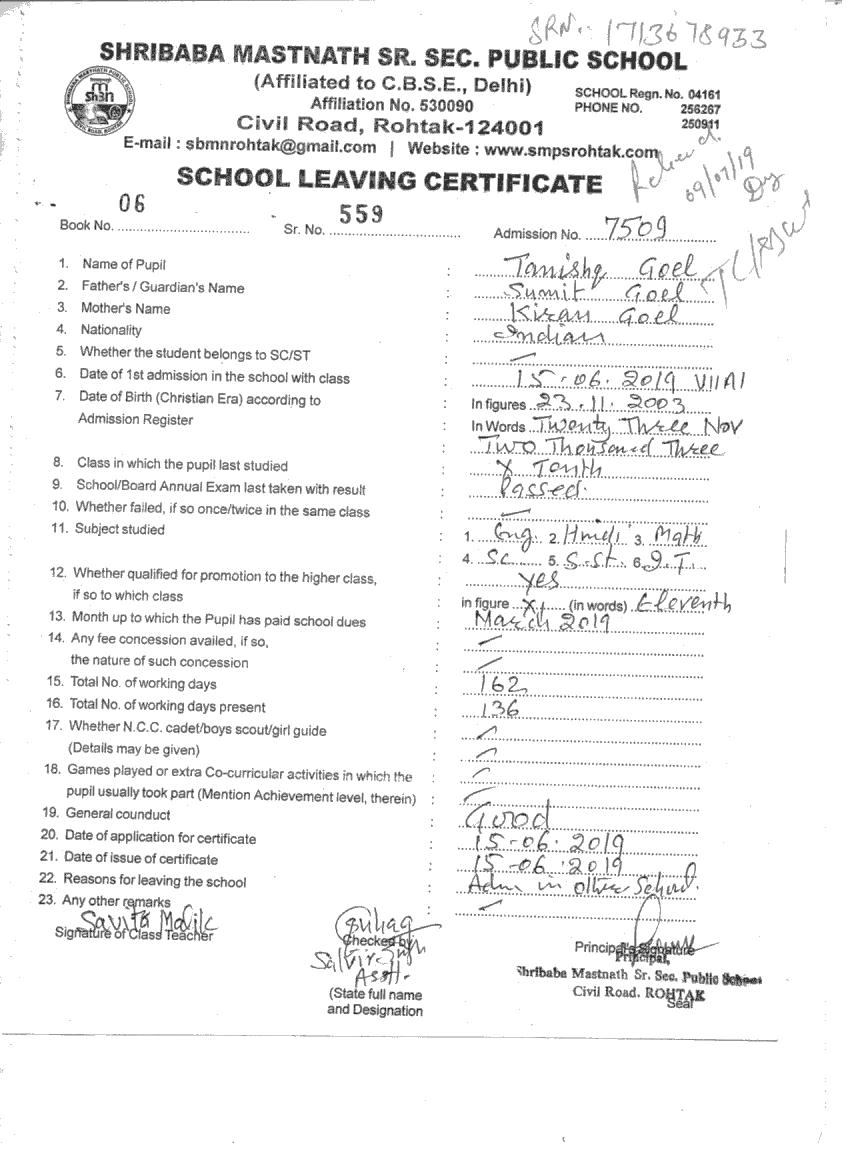 SRN.. 1713678933
SHRIBABA MASTNATH SR. SEC. PUBLIC SCHOOL
(Affiliated to C.B.S.E., Delhi)
Affiliation No. 530090
SCHOOL Regn. No. 04161
PHONE NO. 256267
250911
Civil Road, Rohtak-124001
E-mail : sbmnrohtak@gmail.com | Website : www.smpsrohtak.com
SCHOOL LEAVING CERTIFICATE
09/07/19
Book No. 06 Sr. No. 559 Admission No. 7509
1. Name of Pupil : Tanishq Goel
2. Father's / Guardian's Name : Sumit Goel
3. Mother's Name : Kiran Goel
4. Nationality : Indian
5. Whether the student belongs to SC/ST : —
6. Date of 1st admission in the school with class : 15.06.2019 VII A1
7. Date of Birth (Christian Era) according to : In figures 23.11.2003
Admission Register : In Words Twenty Three Nov
Two Thousand Three
8. Class in which the pupil last studied : X Tenth
9. School/Board Annual Exam last taken with result : Passed.
10. Whether failed, if so once/twice in the same class : —
11. Subject studied : 1. Eng. 2. Hindi 3. Math
4. SC 5. S.St. 6. I.T.
12. Whether qualified for promotion to the higher class, : Yes
if so to which class in figure XI (in words) Eleventh
13. Month up to which the Pupil has paid school dues : March 2019
14. Any fee concession availed, if so, : —
the nature of such concession —
15. Total No. of working days : 162
16. Total No. of working days present : 136
17. Whether N.C.C. cadet/boys scout/girl guide : —
(Details may be given) —
18. Games played or extra Co-curricular activities in which the : —
pupil usually took part (Mention Achievement level, therein) : —
19. General counduct : Good
20. Date of application for certificate : 15-06.2019
21. Date of issue of certificate : 15-06.2019
22. Reasons for leaving the school : Adm in other School.
23. Any other remarks : —
Savita Malik
Signature of Class Teacher
Checked by
Asstt.
(State full name
and Designation
Principal's Signature
Principal,
Shribaba Mastnath Sr. Sec. Public School
Civil Road. ROHTAK
Seal